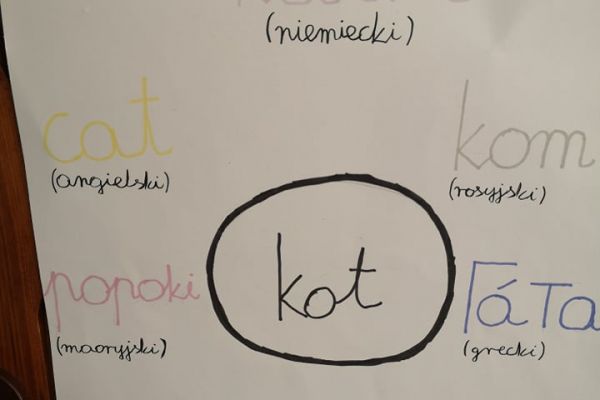 (niemiecki)
cat
(angielski)
кот
(rosyjski)
kot
popoki
(maoryjski)
Γάτα
(grecki)